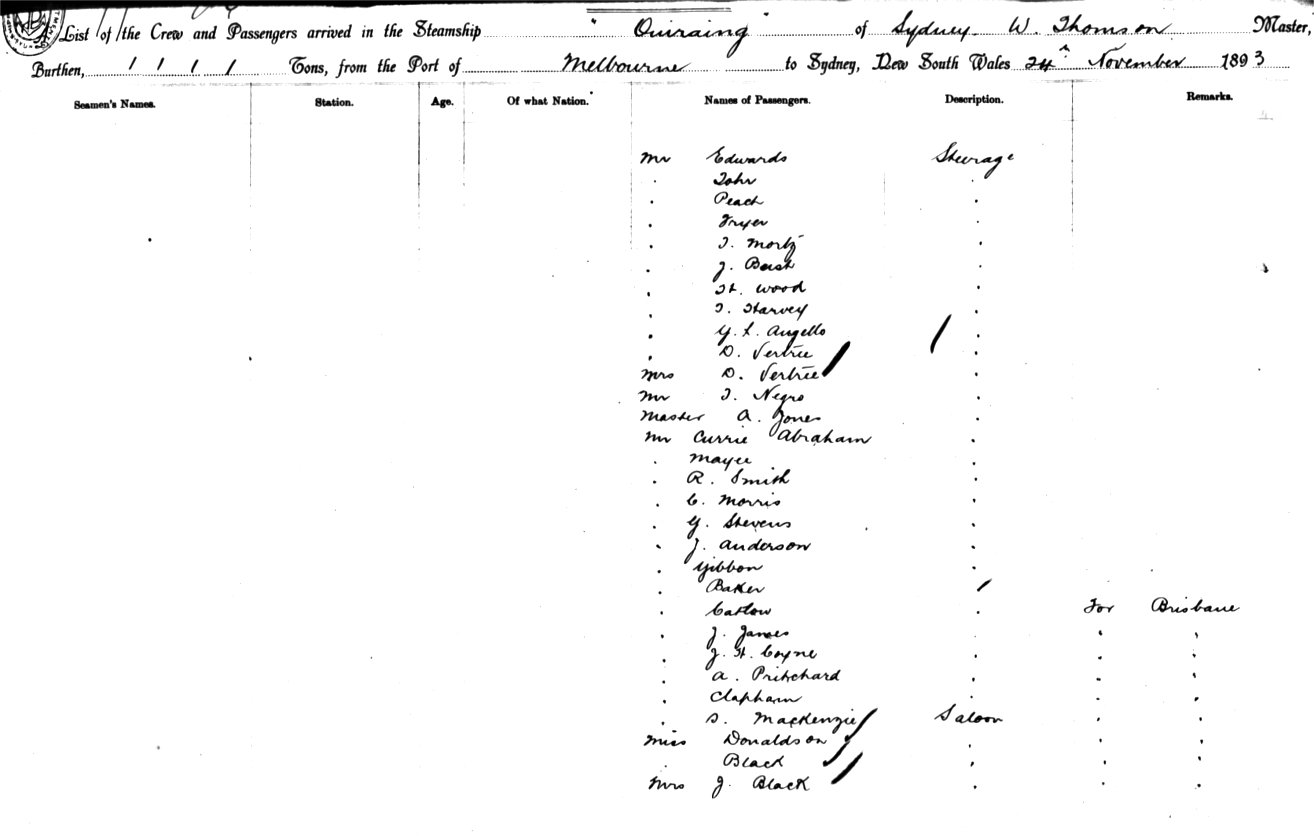 List of the Crew and Passengers arrived in the Steamship "Quiraing" of Sydney W. Thomson Master,
Burthen, 1111 Tons, from the Port of Melbourne to Sydney, New South Wales 24th November 1893
Seamen's Names. Station. Age. Of what Nation. Names of Passengers. Description. Remarks.
Mr Edwards Steerage
. .
. Peach .
. Fryer .
. .
. J. .
. H. Wood .
. T. Harvey .
. G. L. Angello .
. D. Vertrie .
Mrs D. Vertrie .
Mr T. Negro .
Master A. Jones .
Mr Currie Abraham .
. Mayee .
. R. Smith .
. C. Morris .
. G. Stevens .
. J. Anderson .
. Gibbon .
. Baker
. Catlow . For Brisbane
. J. James . . .
. J. H. Coyne . . .
. A. Pritchard . . .
. Clapham . . .
. S. MacKenzie Saloon . .
Miss Donaldson . . .
. Black . . .
Mrs J. Black . . .